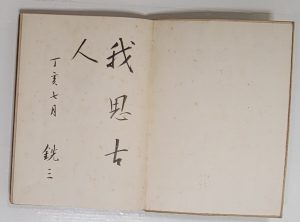 我思古
人
丁亥七月
銑三